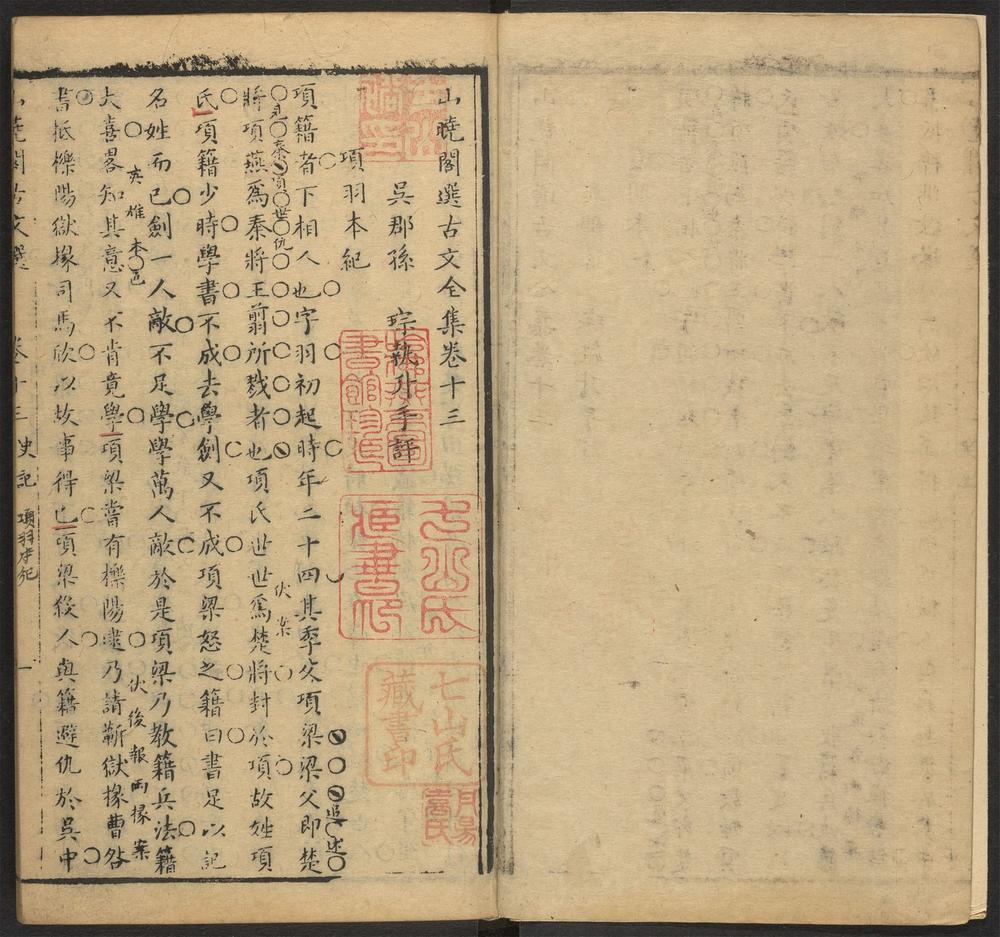 山曉閣選古文全集卷十三
吳郡孫 琮執升手評
項羽本紀
追述
項籍者下相人也字羽初起時年二十四其季父項梁梁父卽楚
是秦項世仇
將項燕爲秦將王翦所戮者也項氏世世爲楚將封於項故姓項
伏案
氏項籍少時學書不成去學劍又不成項梁怒之籍曰書足以記
名姓而已劍一人敵不足學學萬人敵於是項梁乃教籍兵法籍
英雄本色
伏後報兩掾案
大喜畧知其意又不肯竟學項梁嘗有櫟陽逮乃請蘄獄掾曹咎
書抵櫟陽獄掾司馬欣以故事得已項梁殺人與籍避仇於吳中
山曉閣古文選 卷十三 史記 項羽本紀 一
七山氏藏書印